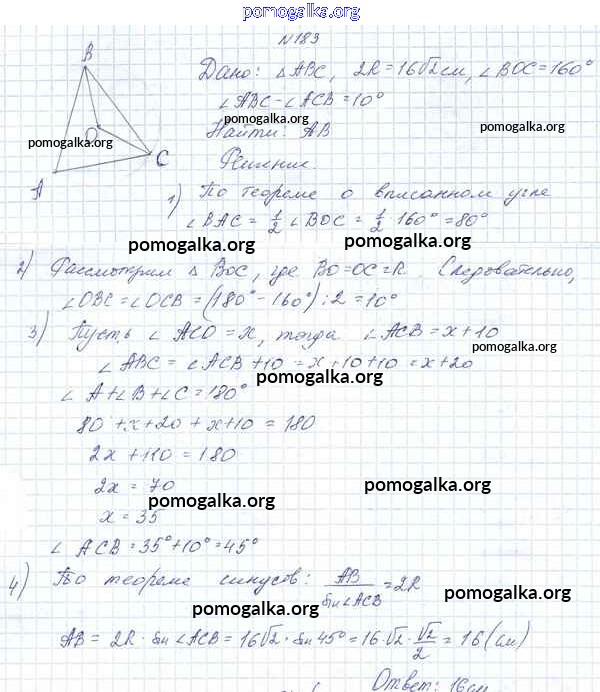 pomogalka.org
N183
B
Дано: △ABC, 2R=16√2см, ∠BOC=160°
∠ABC-∠ACB=10°
pomogalka.org
Найти: AB
pomogalka.org
O
pomogalka.org
Решение.
C
A
1) По теореме о вписанном угле
∠BAC = 1/2 ∠BOC = 1/2 160° = 80°
pomogalka.org pomogalka.org
2) Рассмотрим △BOC, где BO=OC=R. Следовательно,
∠OBC=∠OCB=(180°-160°):2=10°
3) Пусть ∠ACO=x, тогда ∠ACB=x+10
pomogalka.org
∠ABC=∠ACB+10=x+10+10=x+20
pomogalka.org
∠A+∠B+∠C=180°
80+x+20+x+10=180
2x+110=180
2x=70
pomogalka.org
pomogalka.org
x=35
∠ACB=35°+10°=45°
4) По теореме синусов: AB/sin∠ACB=2R
pomogalka.org
pomogalka.org
AB=2R·sin∠ACB=16√2·sin45°=16·√2·√2/2=16(см)
pomogalka.org
Ответ: 16см